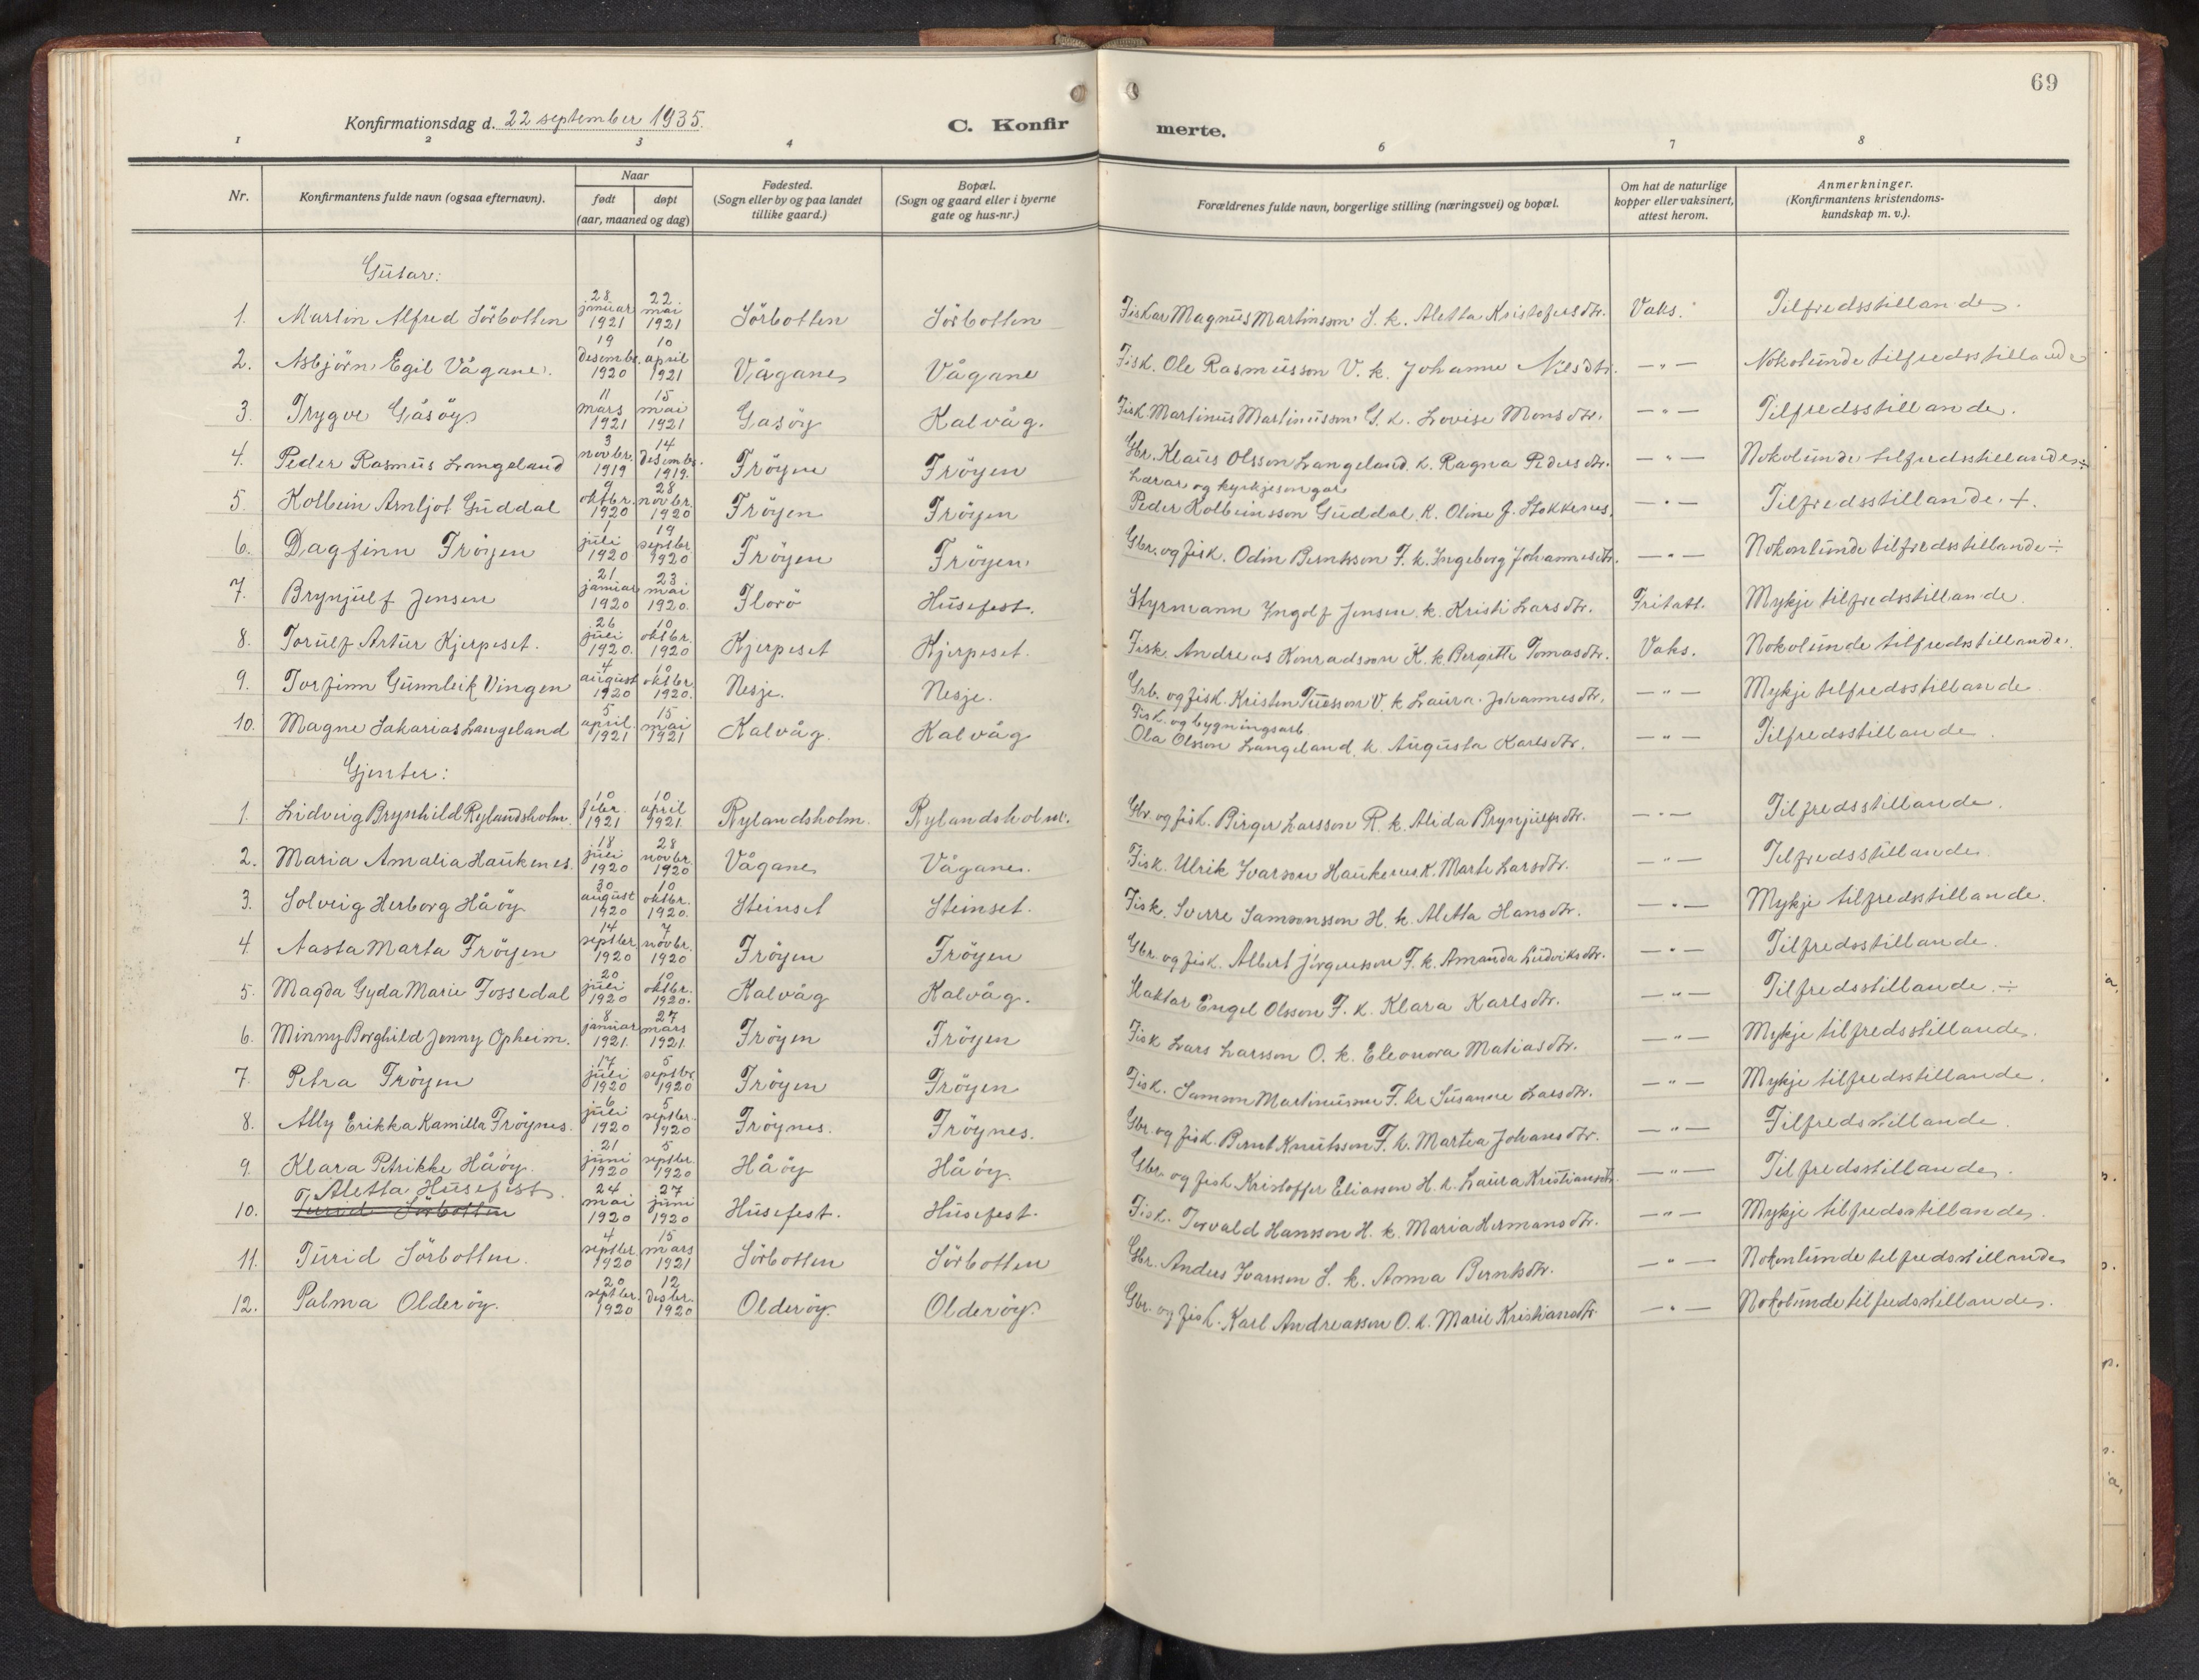 69
Konfirmationsdag d. 22 september 1935.
C. Konfir merte.
1 2 3 4 6 7 8
Nr. Konfirmantens fulde navn (ogsaa efternavn). Naar født døpt (aar, maaned og dag) Fødested. (Sogn eller by og paa landet tillike gaard.) Bopæl. (Sogn og gaard eller i byerne gate og hus-nr.) Forældrenes fulde navn, borgerlige stilling (næringsvei) og bopæl. Om hat de naturlige kopper eller vaksinert, attest herom. Anmerkninger. (Konfirmantens kristendoms-kundskap m. v.).
Gutar:
1. Martin Alfred Sörbotten 28 januar 1921 22. mai 1921 Sörbotten Sörbotten Fiskar Magnus Martinsson S. k. Aletta Kristofersdtr. Vaks. Tilfredsstillande.
2. Asbjörn Egil Vågane. 19 desembr. 1920 10 april 1921 Vågane Vågane Fisk. Ole Rasmusson V. k. Johanne Nilsdtr. —"— Nokolunde tilfredsstillande
3. Trygve Gåsöy 11 mars 1921 15 mai 1921 Gasöy Kalvåg. Fisk. Martinus Martinusson G. k. Lovise Monsdtr. —"— Tilfredsstillande.
4. Peder Rasmus Langeland 3 novbr. 1919 14 desembr. 1919. Fröyen Fröyen Gbr. Klaus Olsson Langeland k. Ragna Pedersdtr. —"— Nokolunde tilfredsstillande ÷
5. Kolbein Arnljot Guddal 9 oktbr. 1920 28 novbr. 1920 Fröyen Fröyen Lærar og kyrkjesongar Peder Kolbeinsson Guddal. k. Oline J. Stokkenes. —"— Tilfredsstillande. +.
6. Dagfinn Fröyen 1 juli 1920 19 septbr 1920 Fröyen Fröyen. Gbr. og fisk. Odin Berntsson F. k. Ingeborg Johannesdtr. —"— Nokonlunde tilfredsstillande ÷
7. Brynjulf Jensen 21 januar 1920 23. mai 1920. Florö Husefest. Styrmann Ingolf Jensen k. Kristi Larsdtr. Fritatt. Mykje tilfredsstillande.
8. Torulf Artur Kjerpeset. 26 juli 1920. 10 oktbr. 1920 Kjerpeset Kjerpeset. Fisk. Andreas Konradsson K. k. Bergitte Tomasdtr. Vaks. Nokolunde tilfredsstillande.
9. Torfinn Gunnleik Vingen 4 august 1920 10 oktbr 1920. Nesje. Nesje. Grb. og fisk. Kristen Tuesson V. k. Laura Johannesdtr. —"— Mykje tilfredsstillande.
10. Magne Sakarias Langeland 5 april. 1921 15 mai 1921 Kalvåg. Kalvåg Fisk. og bygningsarb. Ola Olsson Langeland k. Augusta Karlsdtr. —"— Tilfredsstillande.
Gjenter:
1. Lidveig Brynhild Rylandsholm. 10 febr. 1921 10 april 1921. Rylandsholm. Rylandsholm. Gbr. og fisk. Birger Larsson R. k. Alida Brynjulfsdtr. —"— Tilfredsstillande.
2. Maria Amalia Haukenes. 18 juli 1920 28 novbr. 1920 Vågane Vågane. Fisk. Ulrik Ivarson Haukenes k. Marte Larsdtr. —"— Tilfredsstillande.
3. Solveig Herborg Håöy 30 august 1920 10 oktbr. 1920. Steinset Steinset. Fisk. Sverre Samsonsson H. k. Aletta Hansdtr. —"— Mykje tilfredsstillande.
4 Aasta Marta Fröyen 14 septbr 1920 7 novbr. 1920 Fröyen Fröyen Gbr. og fisk. Albert Jörgensson F. k. Amanda Ludviksdtr. —"— Tilfredsstillande.
5. Magda Gyda Marie Fossedal 20 juli 1920 10 oktbr. 1920. Kalvåg Kalvåg. Slaktar Engel Olsson F. k. Klara Karlsdtr. —"— Tilfredsstillande. ÷
6. Minny Borghild Jenny Opheim. 8 januar 1921. 27 mars 1921. Fröyen Fröyen Fisk Lars Larsson O. k. Eleonora Matiasdtr. —"— Mykje tilfredsstillande.
7. Petra Fröyen 17 juli 1920 5 septbr 1920 Fröyen Fröyen Fisk. Samson Martinusson F. k. Susanne Larsdtr. —"— Mykje tilfredsstillande.
8. Ally Erikka Kamilla Fröynes. 6 juli 1920 5 septbr. 1920 Fröynes. Fröynes. Gbr. og fisk. Bernt Knutsson F. k. Martea Johansdtr. —"— Tilfredsstillande.
9. Klara Petrikke Håöy. 21 juni 1920 5 septbr. 1920 Håöy Håöy Gbr. og fisk Kristoffer Eliasson H. k. Laura Kristiansdtr. —"— Tilfredsstillande.
10. Aletta Husefest. Turid Sörbotten 24 mai 1920 27 juni 1920 Husefest. Husefest. Fisk. Torvald Hansson H. k. Maria Hermansdtr. —"— Mykje tilfredsstillande.
11. Turid Sörbotten. 4 septbr 1920 15 mars 1921 Sörbotten Sörbotten Gbr. Anders Ivarsson S. k. Anna Berntsdtr. —"— Nokonlunde tilfredsstillande
12. Palma Olderöy. 20 septbr. 1920 12 desbr. 1920 Olderöy. Olderöy. Gbr. og fisk. Karl Andreasson O. k. Marie Kristiansdtr. —"— Nokolunde tilfredsstillande.